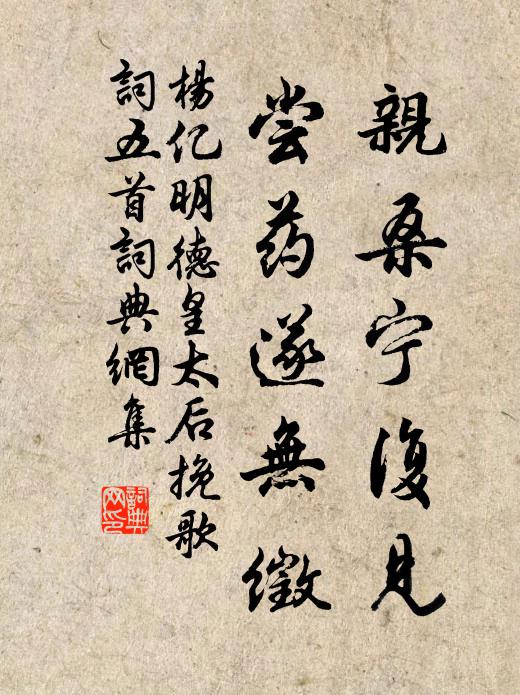 親桑宁復見
尝药遂無徵
楊亿明德皇太后挽歌
詞五首詞典網集
詞典网印